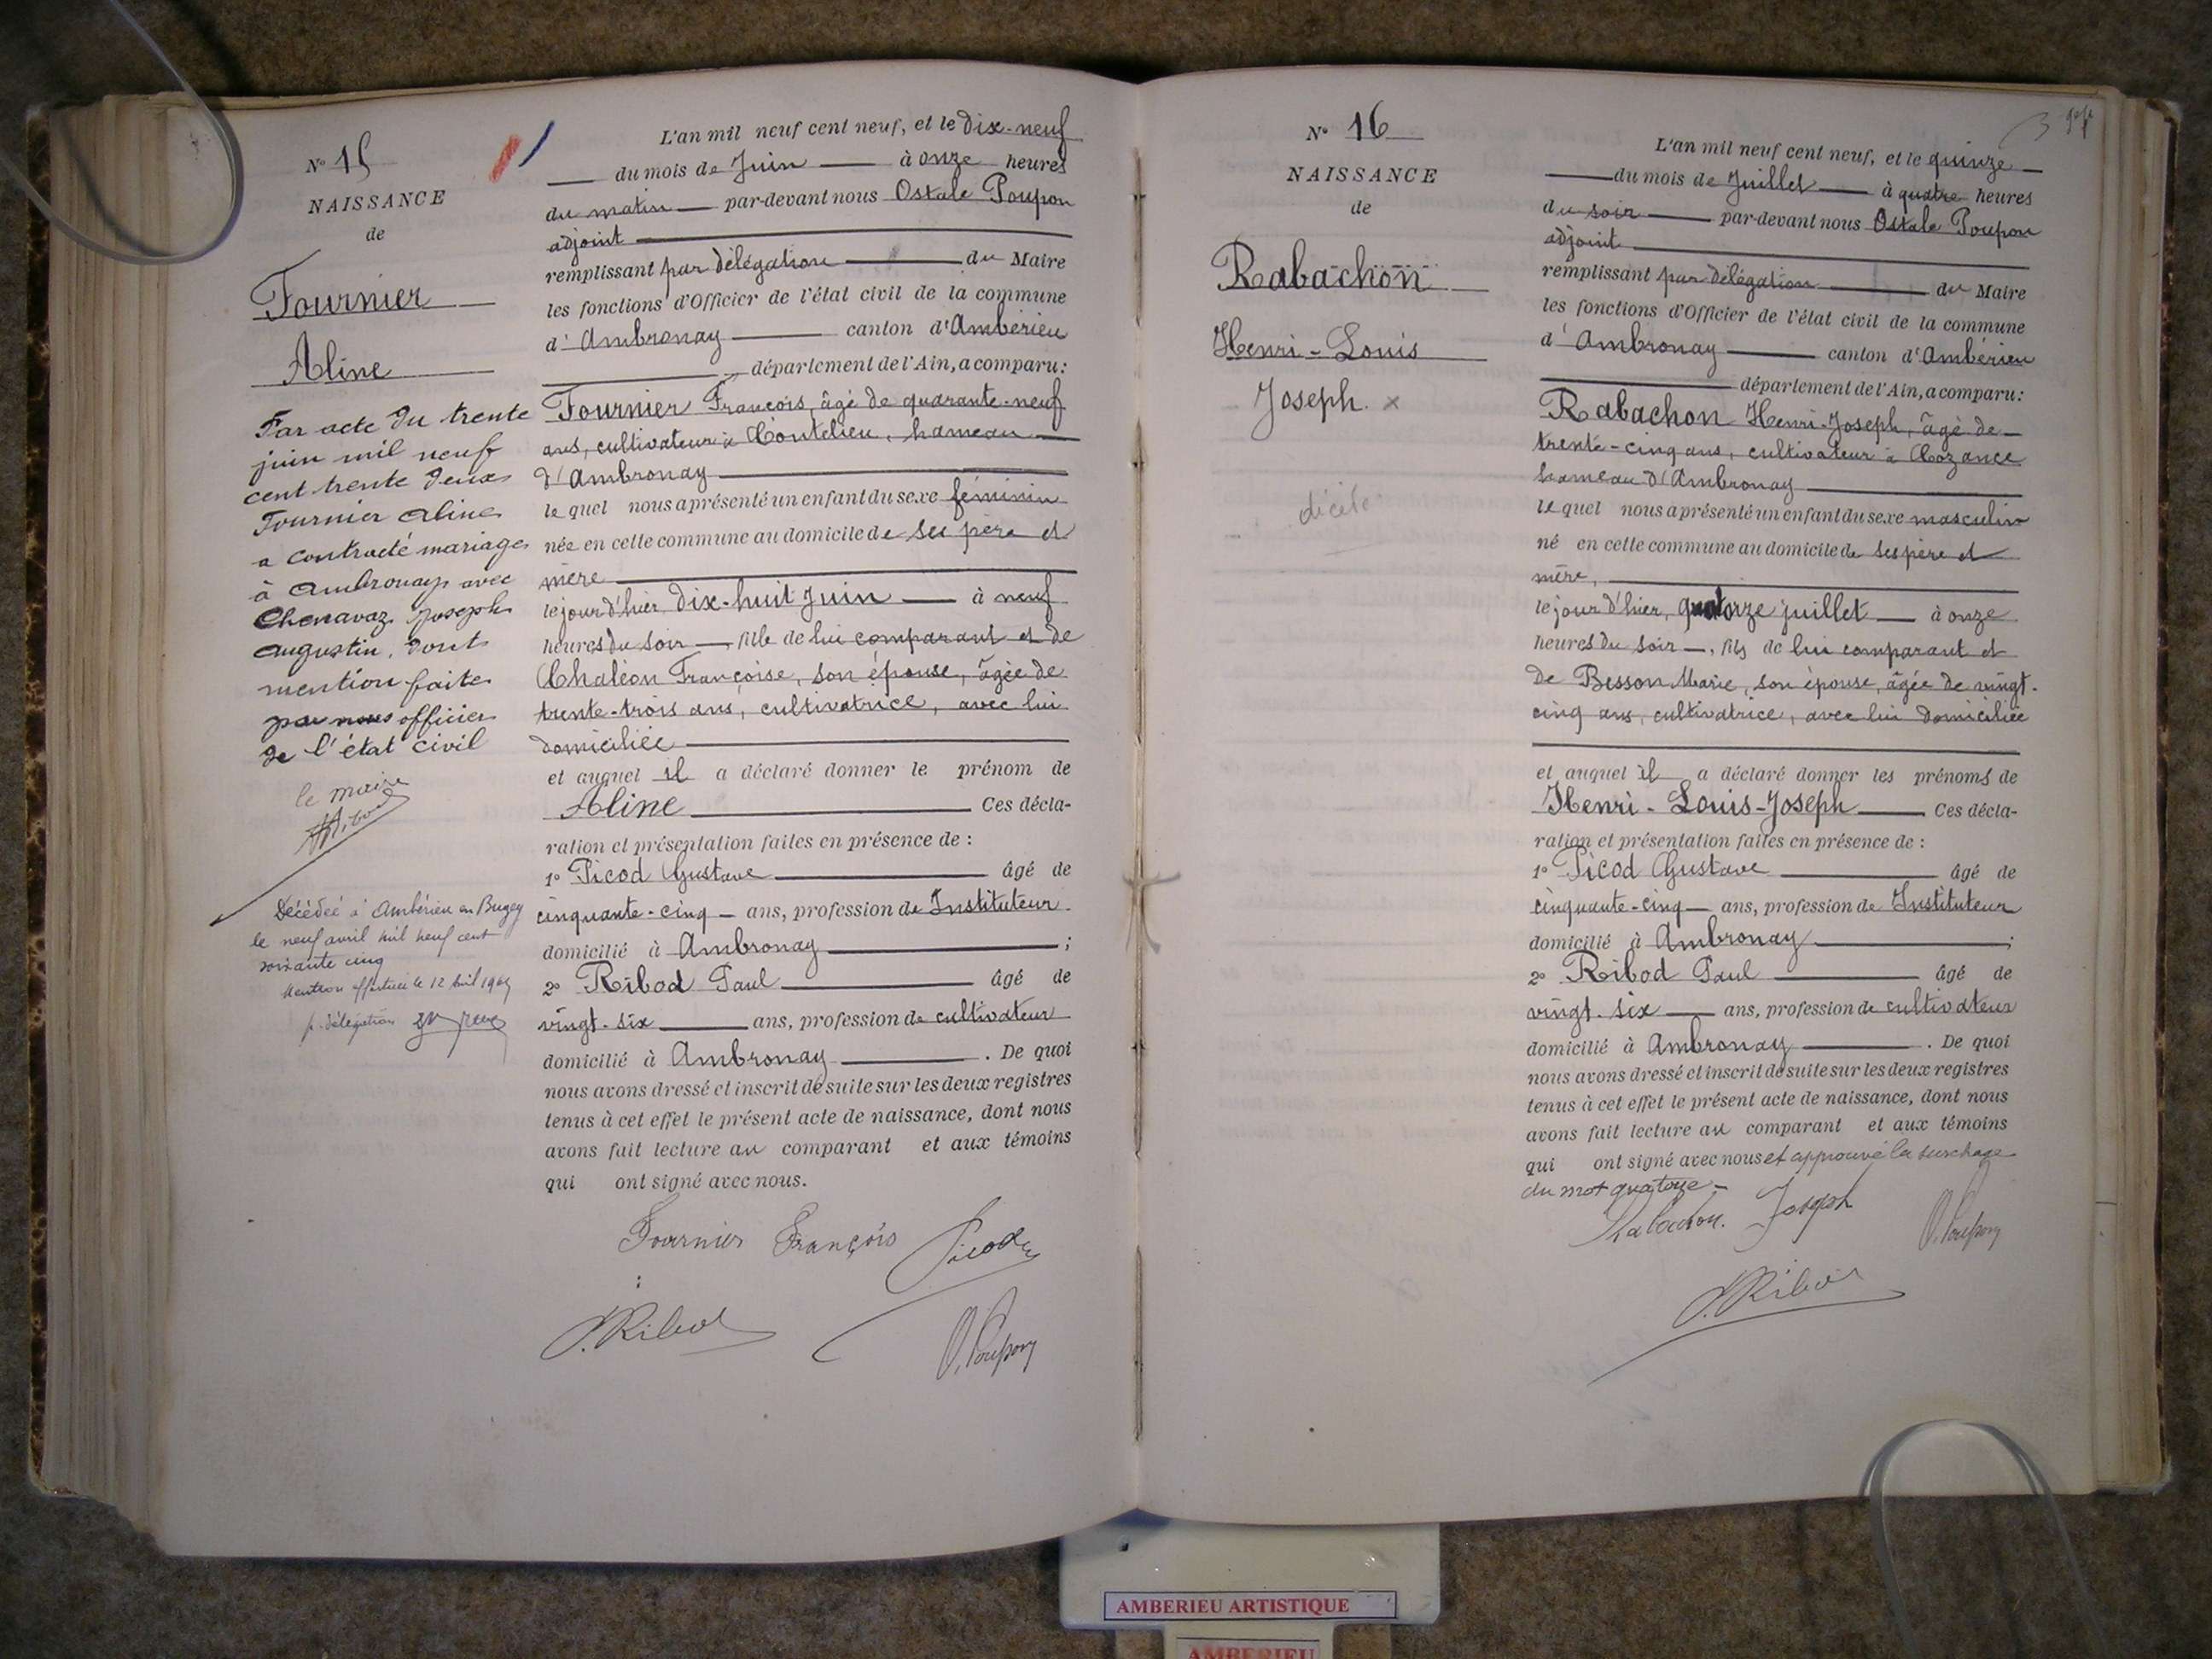 N° 15
NAISSANCE
de
Fournier
Aline
Par acte du trente
juin mil neuf
cent trente deux
Fournier Aline
a contracté mariage
à Ambronay avec
Chenavaz Joseph
Augustin, dont
mention faite
par nous officier
de l'état civil
le maire
Décédée à Ambérieu en Bugey
le neuf avril mil neuf cent
soixante cinq
Mention effectuée le 12 avril 1965
p. délégation
L'an mil neuf cent neuf, et le dix-neuf
du mois de Juin à onze heures
du matin par-devant nous Ostale Poupon
adjoint
remplissant par délégation du Maire
les fonctions d'Officier de l'état civil de la commune
d'Ambronay canton d'Ambérieu
département de l'Ain, a comparu:
Fournier François, âgé de quarante-neuf
ans, cultivateur à Coutelieu, hameau
d'Ambronay
lequel nous a présenté un enfant du sexe féminin
née en cette commune au domicile de ses père et
mère
le jour d'hier dix-huit Juin à neuf
heures du soir fille de lui comparant et de
Chaléon Françoise, son épouse, âgée de
trente-trois ans, cultivatrice, avec lui
domiciliée
et auquel il a déclaré donner le prénom de
Aline Ces décla-
ration et présentation faites en présence de :
1° Picod Gustave âgé de
cinquante-cinq ans, profession de Instituteur
domicilié à Ambronay ;
2° Ribod Paul âgé de
vingt-six ans, profession de cultivateur
domicilié à Ambronay . De quoi
nous avons dressé et inscrit de suite sur les deux registres
tenus à cet effet le présent acte de naissance, dont nous
avons fait lecture au comparant et aux témoins
qui ont signé avec nous.
Fournier François Picod
P. Ribod
O. Poupon
N° 16
NAISSANCE
de
Rabachon
Henri-Louis
Joseph. x
décédé
L'an mil neuf cent neuf, et le quinze
du mois de Juillet à quatre heures
du soir par-devant nous Ostale Poupon
adjoint
remplissant par délégation du Maire
les fonctions d'Officier de l'état civil de la commune
d'Ambronay canton d'Ambérieu
département de l'Ain, a comparu:
Rabachon Henri-Joseph, âgé de
trente-cinq ans, cultivateur à Cozance
hameau d'Ambronay
lequel nous a présenté un enfant du sexe masculin
né en cette commune au domicile de ses père et
mère,
le jour d'hier, quatorze juillet à onze
heures du soir, fils de lui comparant et
de Besson Marie, son épouse, âgée de vingt-
cinq ans, cultivatrice, avec lui domiciliée
et auquel il a déclaré donner les prénoms de
Henri-Louis-Joseph Ces décla-
ration et présentation faites en présence de :
1° Picod Gustave âgé de
cinquante-cinq ans, profession de Instituteur
domicilié à Ambronay ;
2° Ribod Paul âgé de
vingt-six ans, profession de cultivateur
domicilié à Ambronay . De quoi
nous avons dressé et inscrit de suite sur les deux registres
tenus à cet effet le présent acte de naissance, dont nous
avons fait lecture au comparant et aux témoins
qui ont signé avec nous et approuvé la surchage
du mot quatorze
Rabachon. Joseph
O. Poupon
P. Ribod
AMBERIEU ARTISTIQUE
AMBERIEU